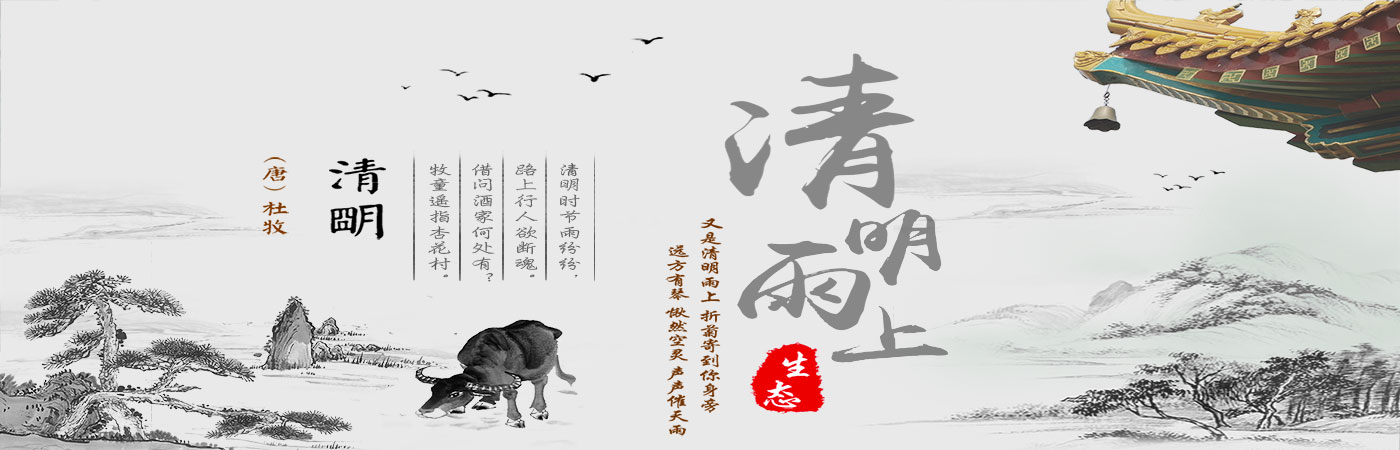 清明
(唐)杜牧
清明时节雨纷纷,
路上行人欲断魂。
借问酒家何处有?
牧童遥指杏花村。
清明雨上
生态
又是清明雨上 折菊寄到你身旁
远方有琴 愀然空灵 声声催天雨